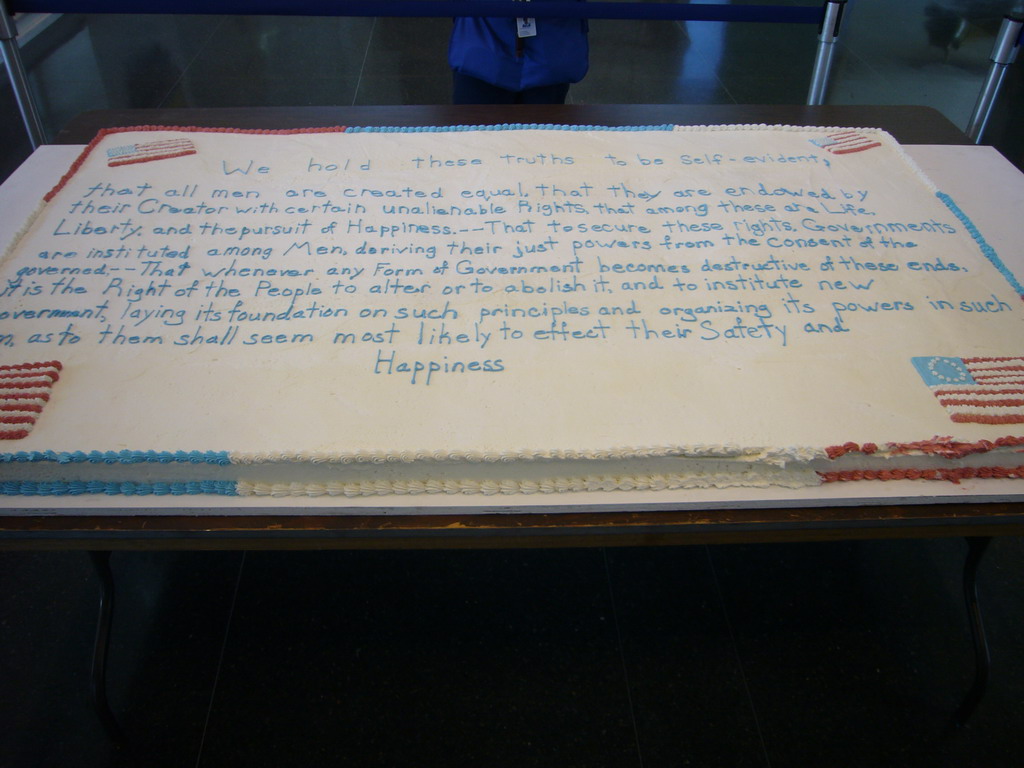 We hold these truths to be self-evident,
that all men are created equal, that they are endowed by
their Creator with certain unalienable Rights, that among these are Life,
Liberty, and the pursuit of Happiness.--That to secure these rights, Governments
are instituted among Men, deriving their just powers from the Consent of the
governed.--That whenever any Form of Government becomes destructive of these ends,
it is the Right of the People to alter or to abolish it, and to institute new
overnment, laying its foundation on such principles and organizing its powers in such
as to them shall seem most likely to effect their Safety and
Happiness